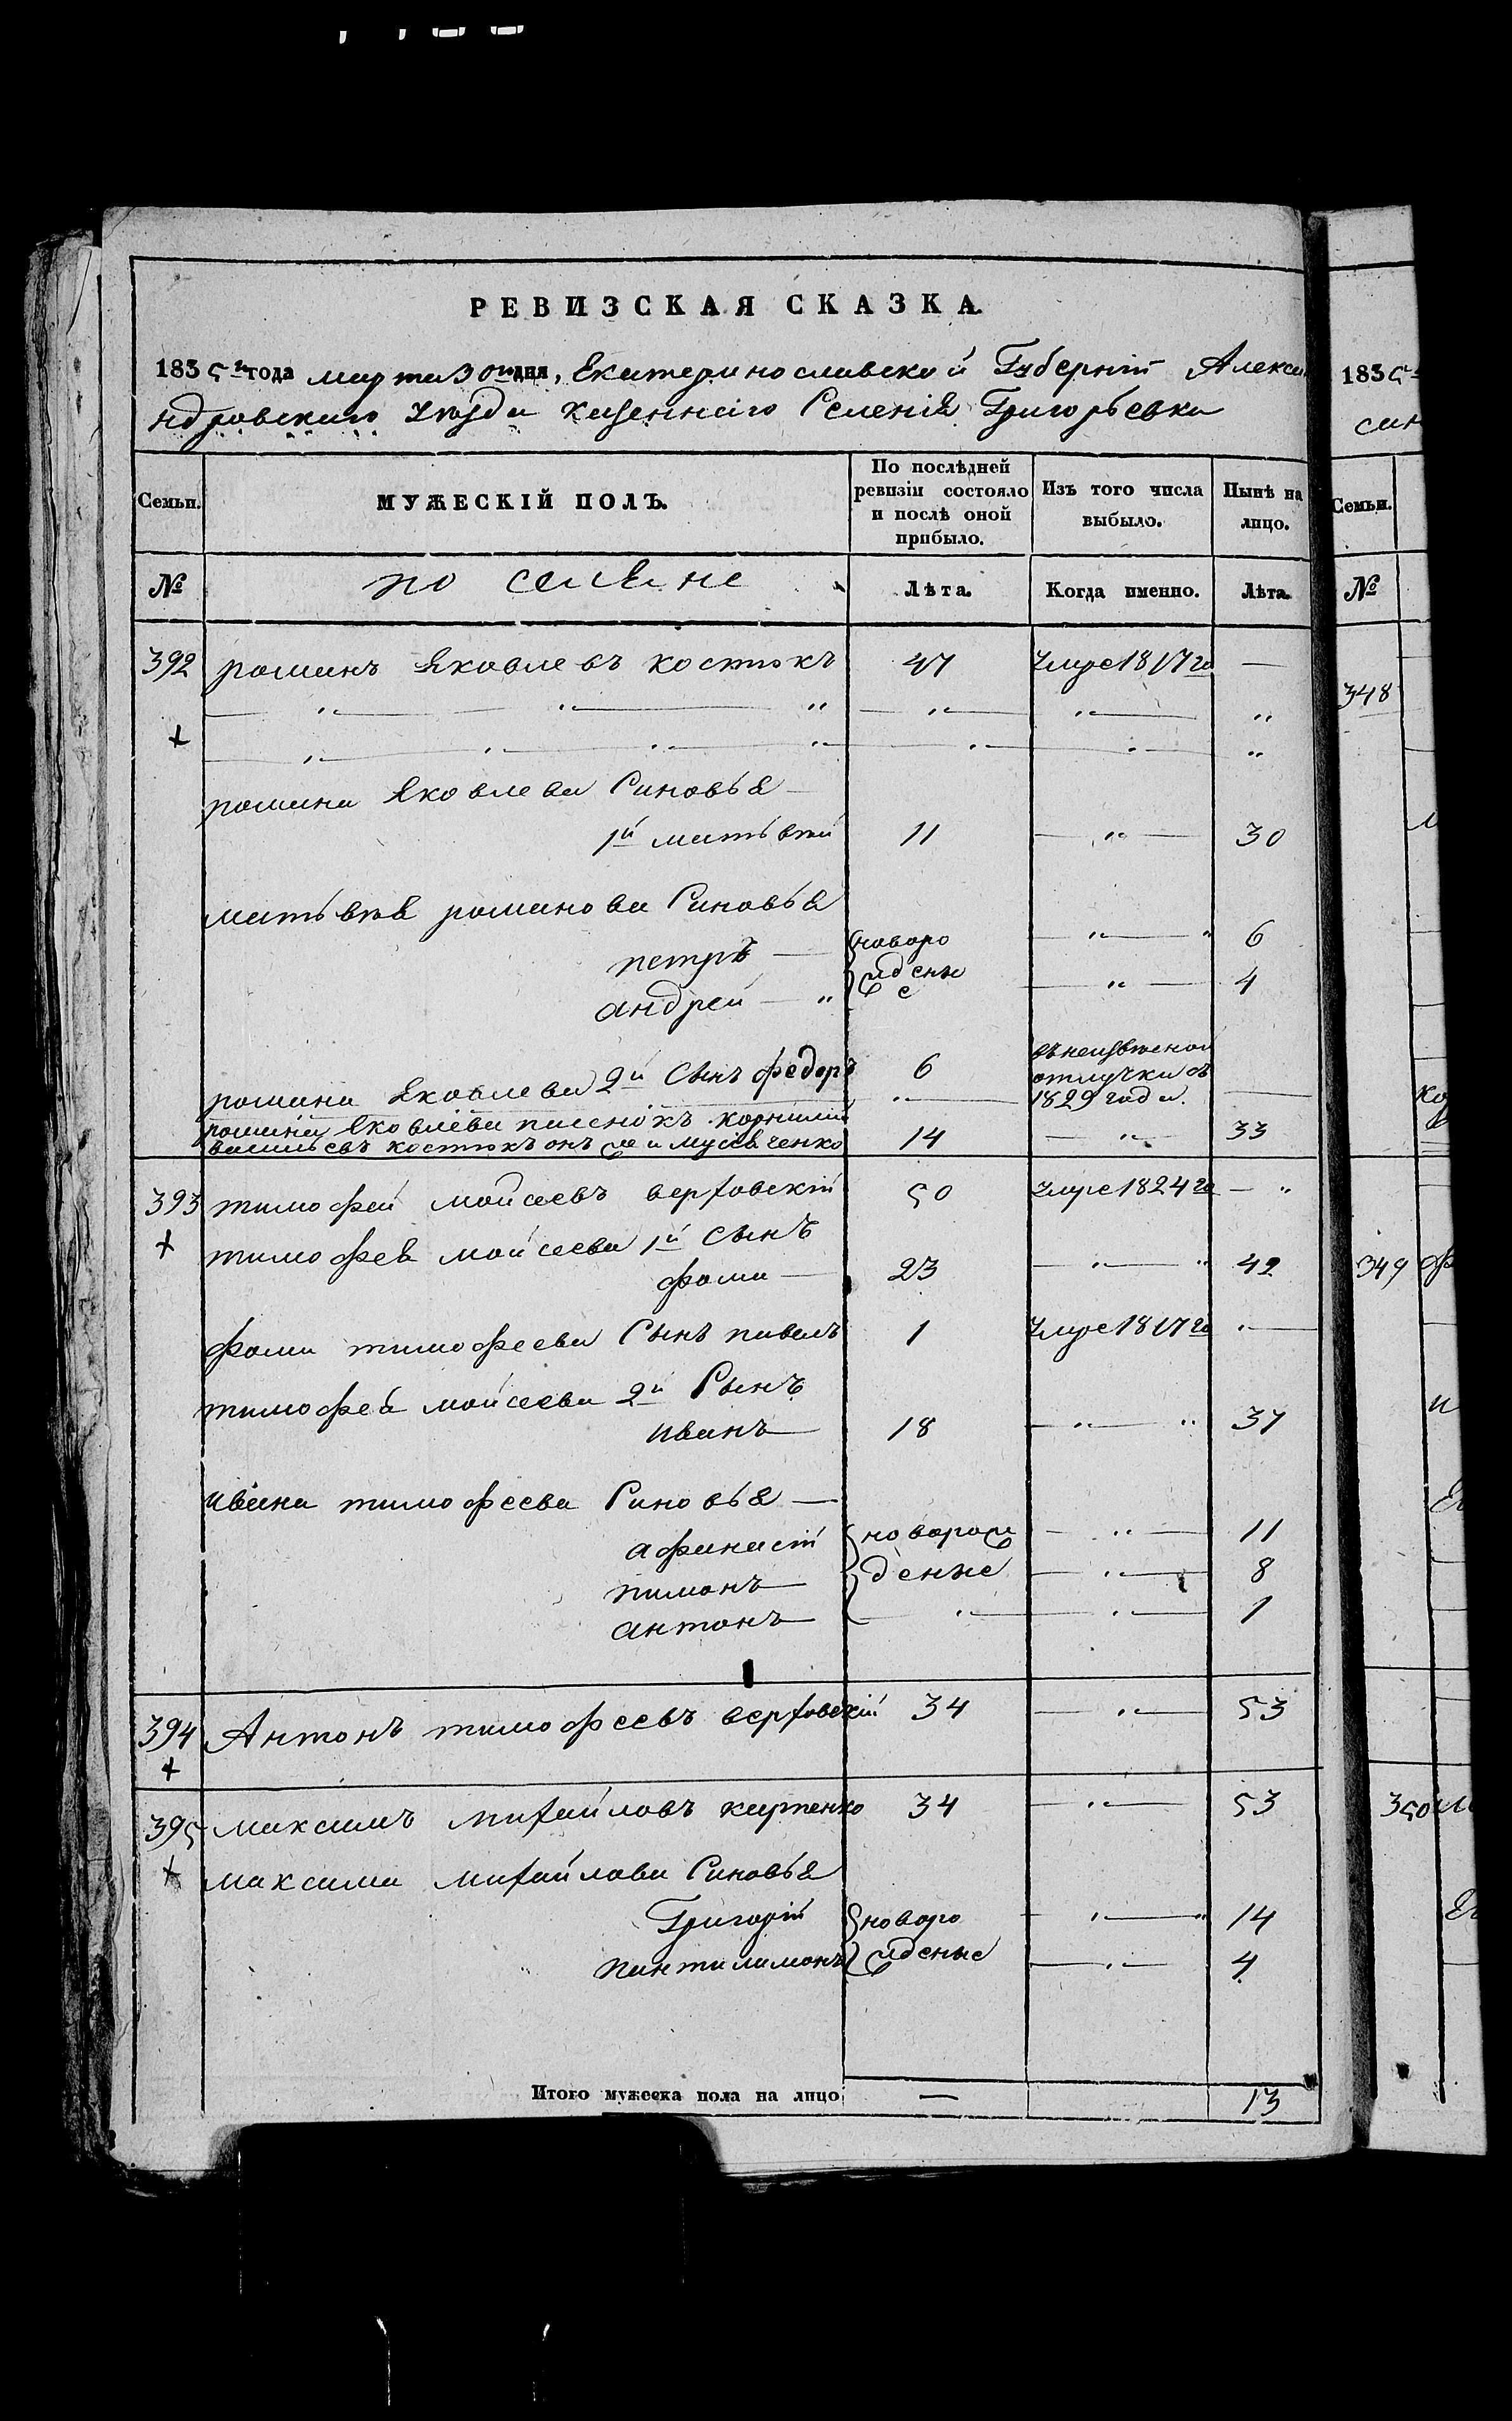 РЕВИЗСКАЯ СКАЗКА.
1835го года марта 30го дня, Екатеринославской Губерніи Алекса
ндровскаго уезда казеннаго Селенія Григорьевки
Семьи. МУЖЕСКІЙ ПОЛЪ. По послѣдней ревизіи состояло и послѣ оной прибыло. Изъ того числа выбыло. Нынѣ на лицо.
№ Лѣта. Когда именно. Лѣта.
392 романъ яковлевъ костюкъ 47 умре 1817го —
романа яковлева Синовья
1й матьвѣй 11 30
матьвѣя романова Синовья
петръ новоро 6
андрей жденые 4
романа яковлева 2й сынъ федоръ 6 отлучки съ 1829 года.
романа яковлева корнилий
васильевъ костюкъ онъ же и 14 33
393 тимофей мойсеевъ верховскій 50 умре 1824го —
тимофея мойсеева 1й сынъ
фома 23 42
фомы тимофеева Сынъ павелъ 1 умре 1817го
тимофея мойсеева 2й Сынъ
иванъ 18 37
ивана тимофеева Синовья
афанасій новорож 11
пимонъ деные 8
антонъ 1
394 Антонъ тимофеевъ верховскій 34 53
395 максимъ михайловъ карпенко 34 53
максима михайлова Синовья
Григорій новоро 14
пантилимонъ жденые 4
Итого мужеска пола на лицо — 13
1835
Семьи.
№
348
349
350